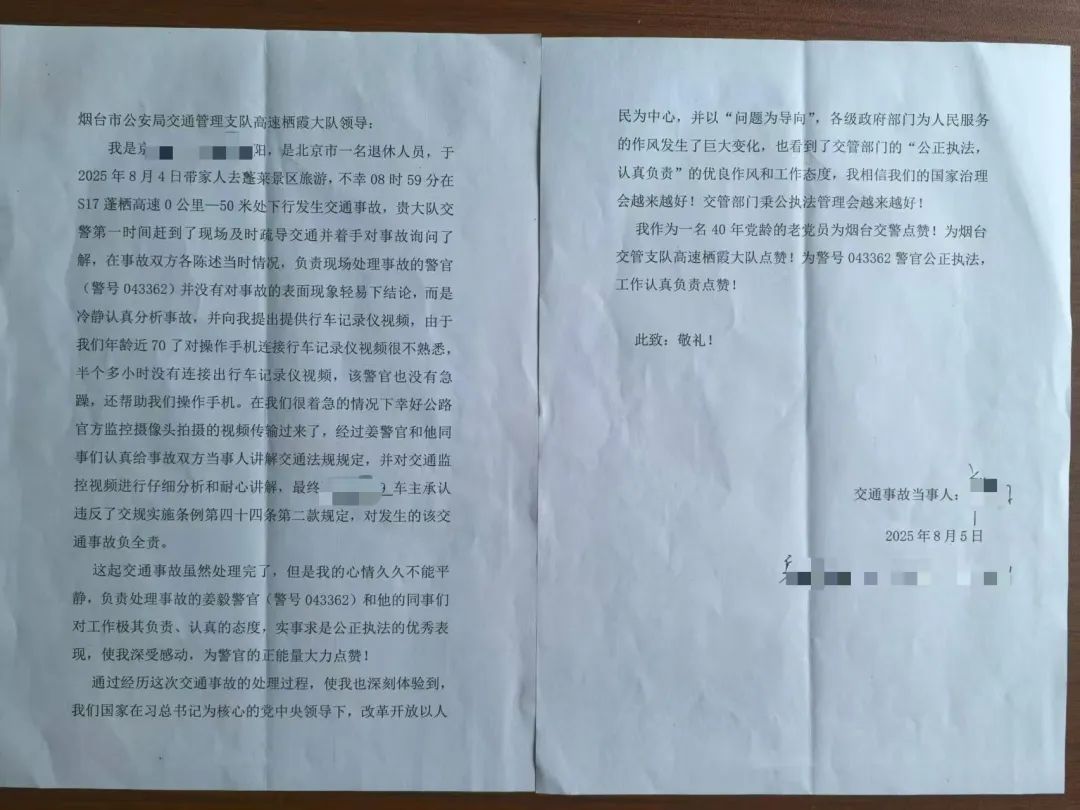 烟台市公安局交通管理支队高速栖霞大队领导：
我是京 阳，是北京市一名退休人员，于
2025 年 8 月 4 日带家人去蓬莱景区旅游，不幸 08 时 59 分在
S17 蓬栖高速 0 公里—50 米处下行发生交通事故，贵大队交
警第一时间赶到了现场及时疏导交通并着手对事故询问了
解，在事故双方各陈述当时情况，负责现场处理事故的警官
（警号 043362）并没有对事故的表面现象轻易下结论，而是
冷静认真分析事故，并向我提出提供行车记录仪视频，由于
我们年龄近 70 了对操作手机连接行车记录仪视频很不熟悉，
半个多小时没有连接出行车记录仪视频，该警官也没有急
躁，还帮助我们操作手机。在我们很着急的情况下幸好公路
官方监控摄像头拍摄的视频传输过来了，经过姜警官和他同
事们认真给事故双方当事人讲解交通法规规定，并对交通监
控视频进行仔细分析和耐心讲解，最终 车主承认
违反了交规实施条例第四十四条第二款规定，对发生的该交
通事故负全责。
这起交通事故虽然处理完了，但是我的心情久久不能平
静，负责处理事故的姜毅警官（警号 043362）和他的同事们
对工作极其负责、认真的态度，实事求是公正执法的优秀表
现，使我深受感动，为警官的正能量大力点赞！
通过经历这次交通事故的处理过程，使我也深刻体验到，
我们国家在习总书记为核心的党中央领导下，改革开放以人
民为中心，并以“问题为导向”，各级政府部门为人民服务
的作风发生了巨大变化，也看到了交管部门的“公正执法，
认真负责”的优良作风和工作态度，我相信我们的国家治理
会越来越好！交管部门秉公执法管理会越来越好！
我作为一名 40 年党龄的老党员为烟台交警点赞！为烟台
交管支队高速栖霞大队点赞！为警号 043362 警官公正执法，
工作认真负责点赞！
此致：敬礼！
交通事故当事人：
2025 年 8 月 5 日